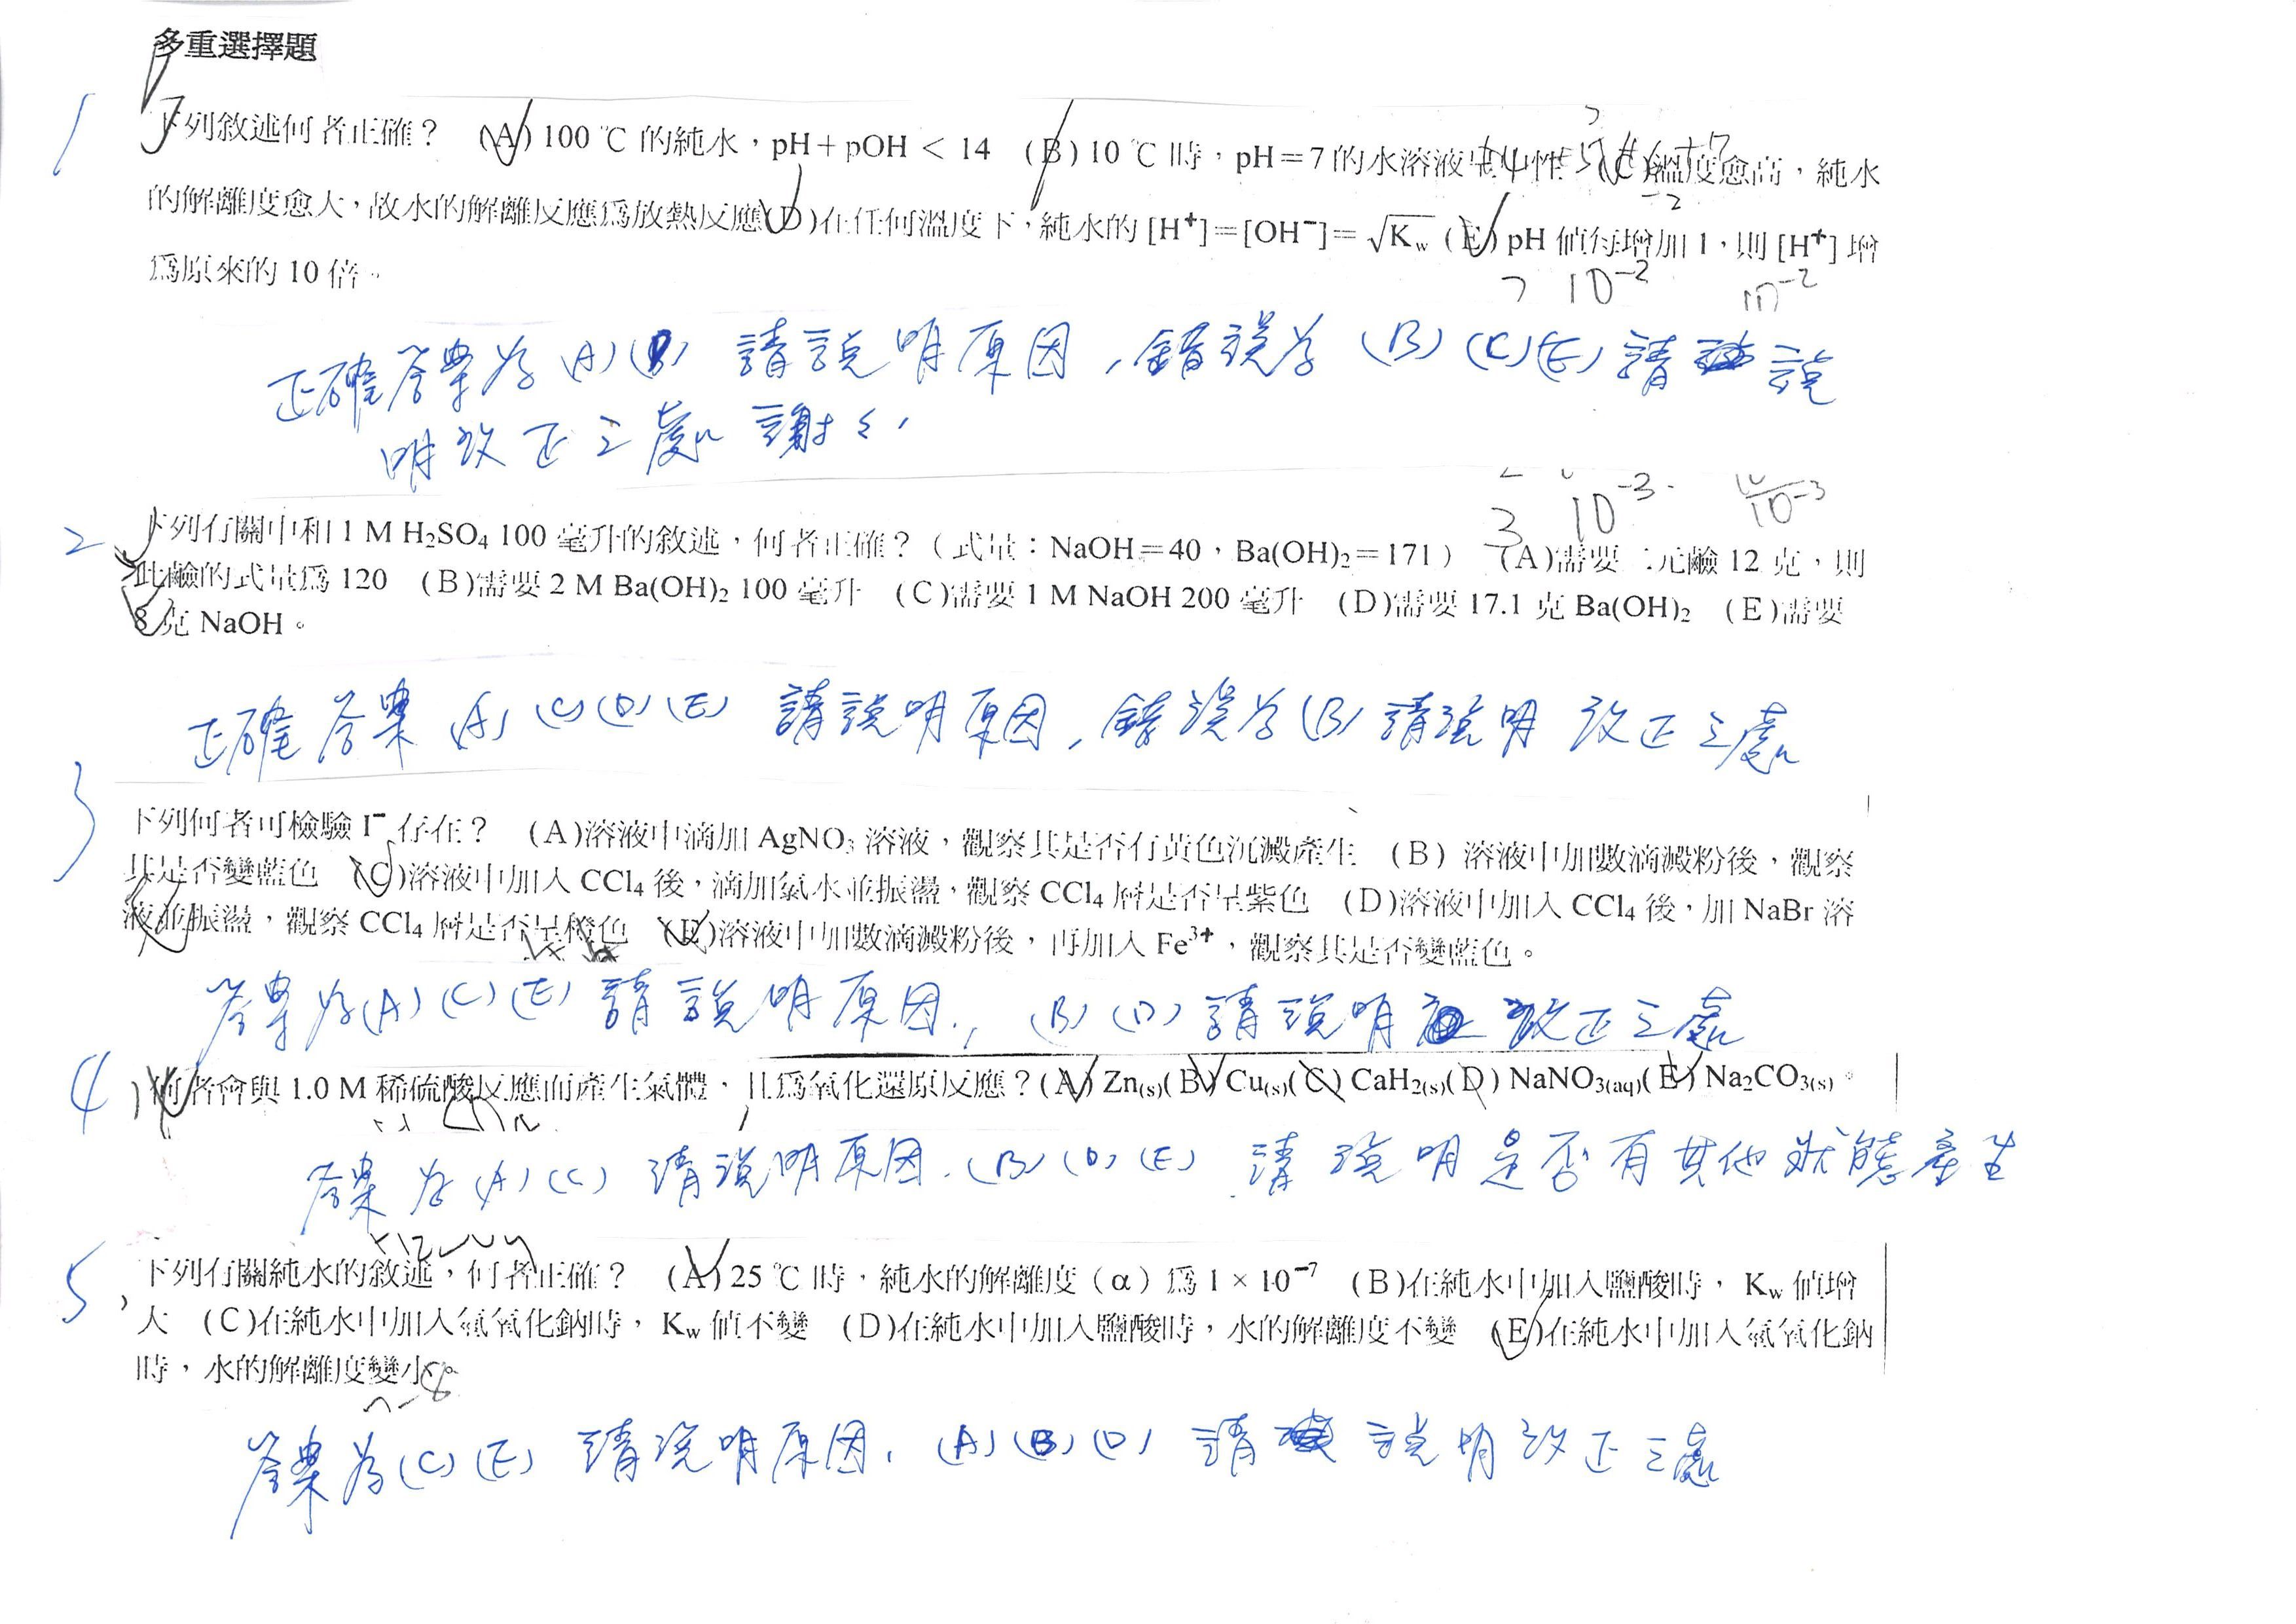 多重選擇題
1
下列敘述何者正確? (A)100 ℃的純水,pH+pOH < 14 (B)10 ℃時,pH=7的水溶液呈中性 (C)溫度愈高,純水
的解離度愈大,故水的解離反應為放熱反應(D)在任何溫度下,純水的[H⁺]=[OH⁻]=√Kw (E)pH值每增加1,則[H⁺]增
為原來的10倍。
10⁻² 10⁻²
正確答案為(A)(D)請說明原因,錯誤為(B)(C)(E)請說
明改正之處 謝々,
3 10⁻³ 10⁻³
2
下列有關中和1 M H₂SO₄ 100毫升的敘述,何者正確?(式量:NaOH=40,Ba(OH)₂=171) (A)需要二元鹼12克,則
此鹼的式量為120 (B)需要2 M Ba(OH)₂ 100毫升 (C)需要1 M NaOH 200毫升 (D)需要17.1克Ba(OH)₂ (E)需要
8克NaOH。
正確答案(A)(C)(D)(E)請說明原因,錯誤為(B)請說明改正之處
3
下列何者可檢驗I⁻存在? (A)溶液中滴加AgNO₃溶液,觀察其是否有黃色沉澱產生 (B) 溶液中加數滴澱粉後,觀察
其是否變藍色 (C)溶液中加入CCl₄後,滴加氯水並振盪,觀察CCl₄層是否呈紫色 (D)溶液中加入CCl₄後,加NaBr溶
液並振盪,觀察CCl₄層是否呈橙色 (E)溶液中加數滴澱粉後,再加入Fe³⁺,觀察其是否變藍色。
答案為(A)(C)(E)請說明原因,(B)(D)請說明改正之處
4
何者會與1.0 M稀硫酸反應而產生氣體,且為氧化還原反應?(A)Zn(s)(B)Cu(s)(C)CaH₂(s)(D)NaNO₃(aq)(E)Na₂CO₃(s)。
答案為(A)(C)請說明原因.(B)(D)(E)請說明是否有其他狀態產生
5
下列有關純水的敘述,何者正確? (A)25 ℃時,純水的解離度(α)為1 × 10⁻⁷ (B)在純水中加入鹽酸時,Kw值增
大 (C)在純水中加入氫氧化鈉時,Kw值不變 (D)在純水中加入鹽酸時,水的解離度不變 (E)在純水中加入氫氧化鈉
時,水的解離度變小。
答案為(C)(E)請說明原因,(A)(B)(D)請說明改正之處